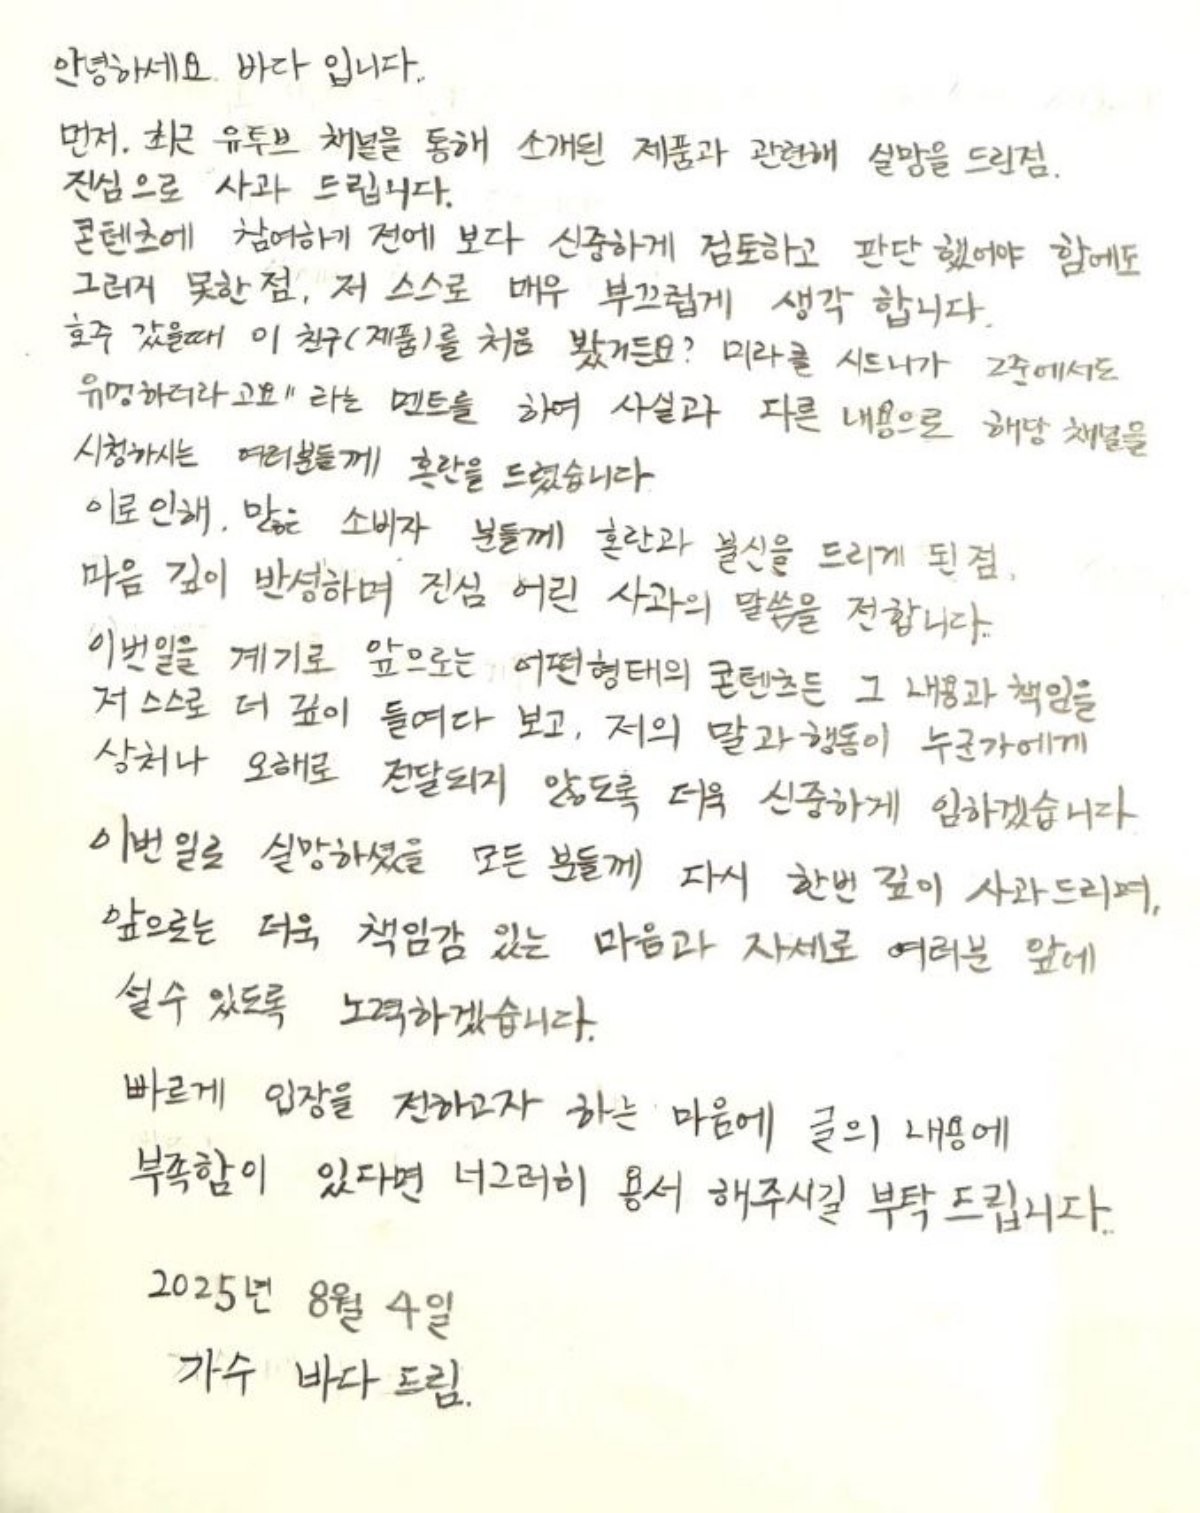 안녕하세요. 바다 입니다.
먼저. 최근 유투브 채널을 통해 소개된 제품과 관련해 실망을 드린점.
진심으로 사과 드립니다.
콘텐츠에 참여하기 전에 보다 신중하게 검토하고 판단 했어야 함에도
그러지 못한 점, 저 스스로 매우 부끄럽게 생각 합니다.
호주 갔을때 이 친구(제품)를 처음 봤거든요? 미라클 시드니가 그중에서도
유명하더라고요" 라는 멘트를 하여 사실과 다른 내용으로 해당 채널을
시청하시는 여러분들께 혼란을 드렸습니다.
이로인해, 많은 소비자 분들께 혼란과 불신을 드리게 된 점,
마음 깊이 반성하며 진심 어린 사과의 말씀을 전합니다.
이번일을 계기로 앞으로는 어떤형태의 콘텐츠든 그 내용과 책임을
저 스스로 더 깊이 들여다 보고, 저의 말과 행동이 누군가에게
상처나 오해로 전달되지 않도록 더욱 신중하게 임하겠습니다
이번 일로 실망하셨을 모든 분들께 다시 한번 깊이 사과드리며,
앞으로는 더욱 책임감 있는 마음과 자세로 여러분 앞에
설수 있도록 노력하겠습니다.
빠르게 입장을 전하고자 하는 마음에 글의 내용에
부족함이 있다면 너그러히 용서 해주시길 부탁 드립니다.
2025년 8월 4일
가수 바다 드림.